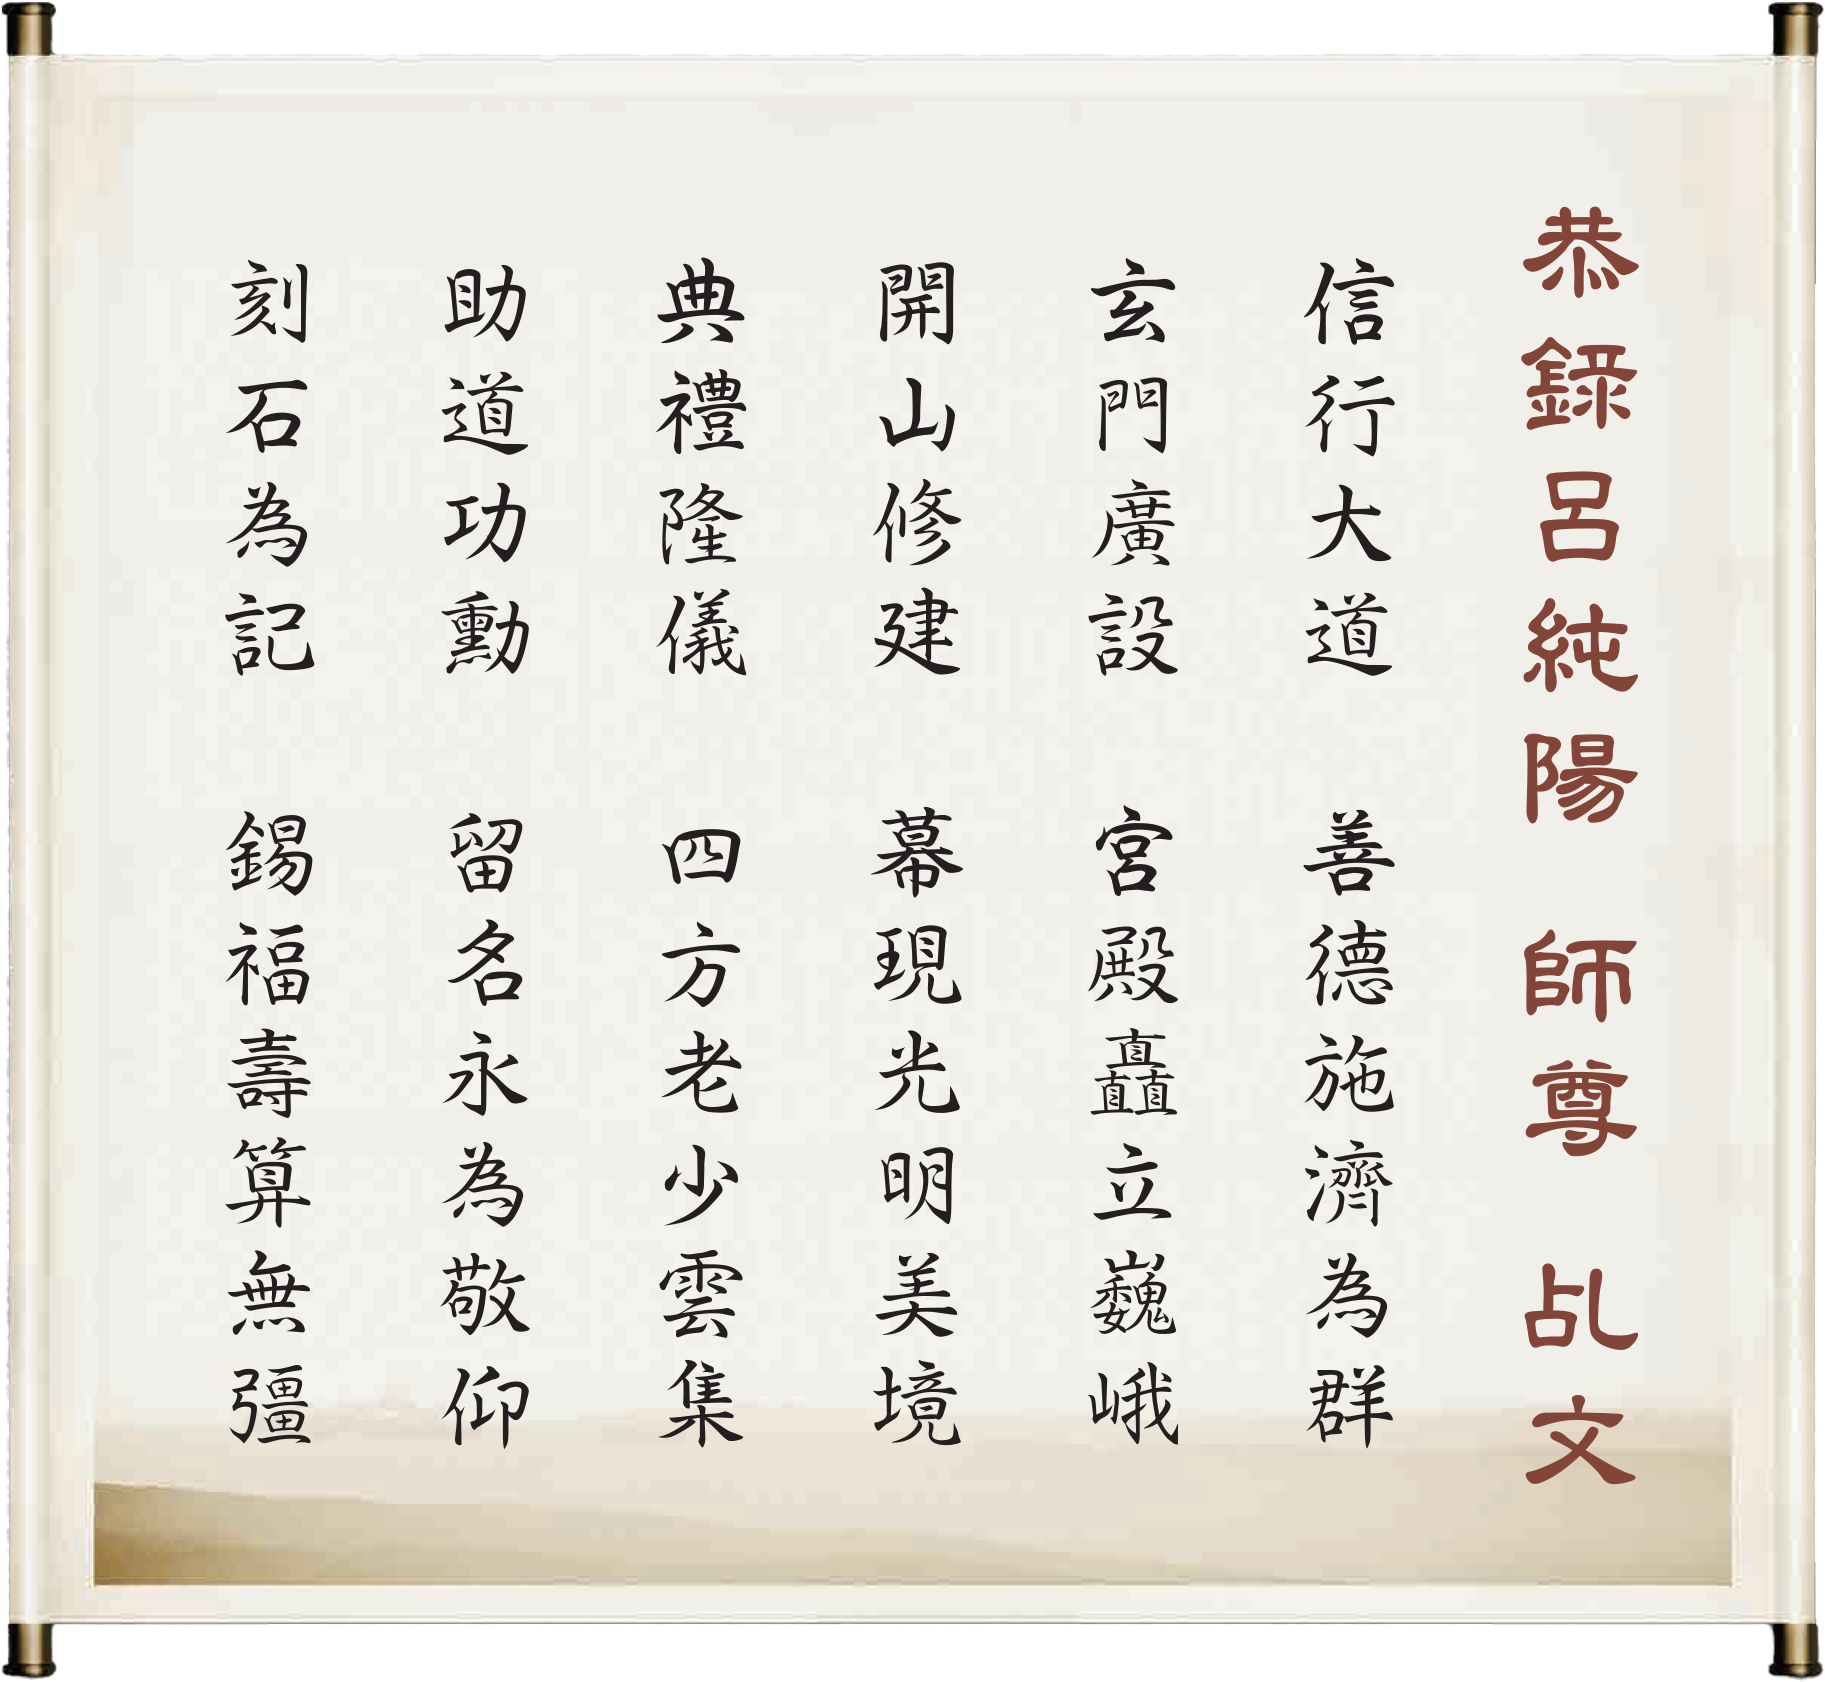 恭錄呂純陽 師尊 乩文
信行大道 善德施濟為群
玄門廣設 宮殿矗立巍峨
開山修建 幕現光明美境
典禮隆儀 四方老少雲集
助道功勳 留名永為敬仰
刻石為記 錫福壽算無彊